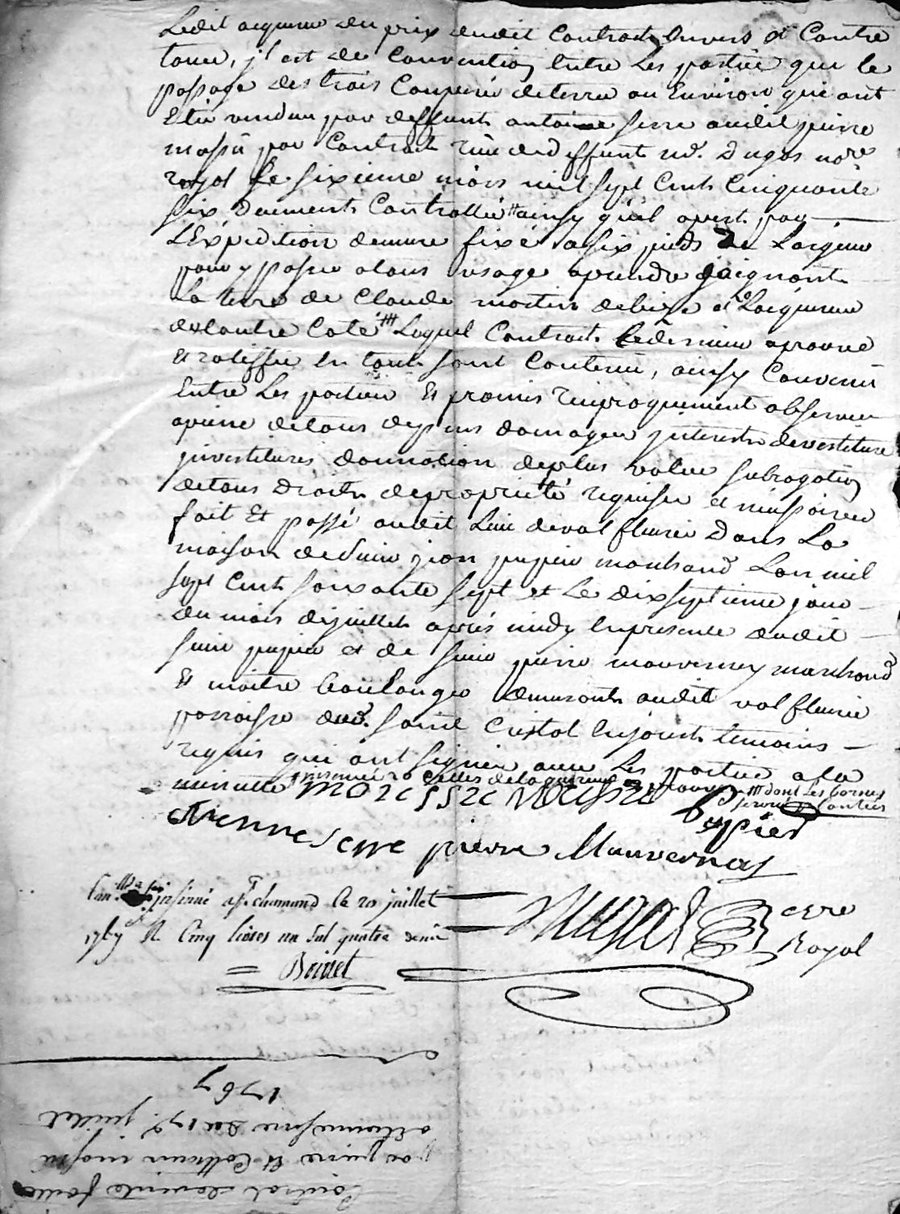 Ledit acquereur du prix dudit Contract Envers et Contre
tous, jl est de Convention Entre Les partie que le
passage des trois Couperée de terre ou Environ qui ont
Eté vendue par deffunt antoine serre audit pierre
par Contract Reçu dudiffunt me. Dugas nore
royal Le sixieme mars mil sept Cents Cinquante
six Duement Controllé # ainsy quil apert par
LExpedition demeure fixé a six pieds de Largeur
pour y passer a tous usage a prendre joignant
La terre de Claude martin et Lacquereur
de Lautre Coté ### Lequel Contract aprouve
Et ratiffie En tout sont Contenu, ainsy Convenu
Entre Les parties Et promis Reciproquement observer
a peine de tous depens domages jnterests devestiture
jnvestitures donnation deplus value subrogation
de tous Droits de propriété requise et necessaires
fait Et passé audit Lieu de val fleurie Dans La
maison de sieur jean pupier marchand Lan mil
sept Cents soixante sept et Le dixseptieme jour
du mois de juillet aprés midy En presence dudit
sieur pupier et de sieur pierre mauvernay marchand
Et maitre boulanger demeurants audit val fleurie
parroisse dud. saint Cristot En jarets temoins
requis qui ont signier avec Les parties a la
minutte
### dont Les bornes
servent de Confins
Pupier
etienne serre pierre Mauvernay
cere
Royal
jnsinué a St. chamond le 20 juillet
1767 R Cinq livres un sol quatre denié
Contract de vente passé
par pierre Et
a Etienne serre Du 17e. juillet
1767